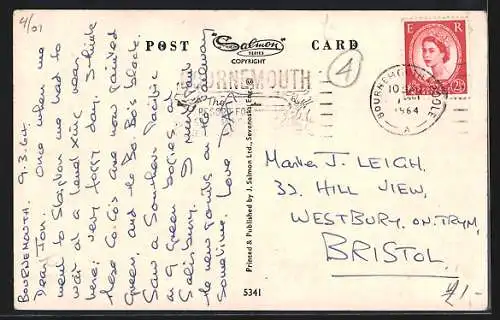 4/01
POST
Salmon
SERIES
COPYRIGHT
CARD
E R
2½
BOURNEMOUTH
The
4
BOURNEMOUTH POOLE
1964
A
BOURNEMOUTH. 9.3.64.
Dear Jon. Once when we
went to Stapton we had to
wait at a level Xing near
here; very foggy day. I think
these Co. Co's are now painted
green, and the Bo. Bo's black.
Saw a Southern Pacific
on 9 green bogies, at
Salisbury. I must
the new on the railway
sometime. Love
Printed & Published by J. Salmon Ltd., Sevenoaks, Eng.
5341
Master J. LEIGH.
33, HILL VIEW,
WESTBURY. ON. TRYM,
BRISTOL.
£1-